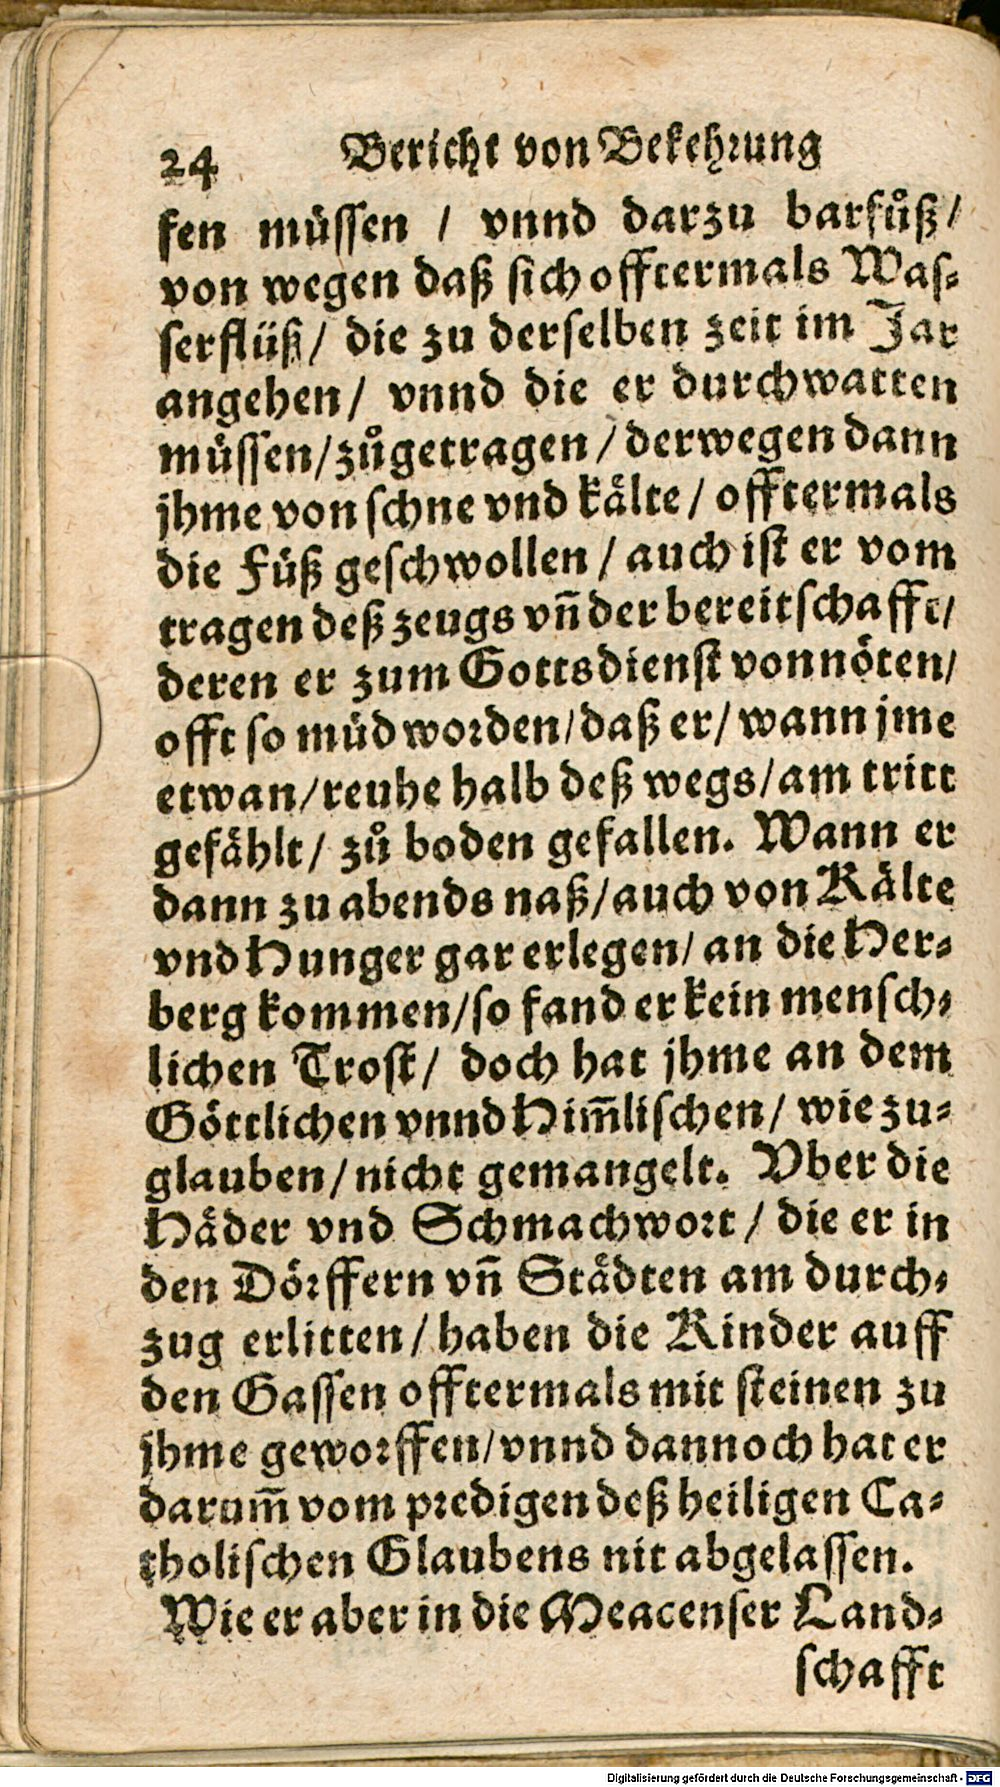 24 Bericht von Bekehrung
fen müssen / vnnd darzu barfůß/
von wegen daß sich offtermals Was⸗
serflüß/ die zu derselben zeit im Jar
angehen/ vnnd die er durchwatten
müssen/zůgetragen/derwegen dann
jhme von schne vnd kälte/ offtermals
die Füß geschwollen/ auch ist er vom
tragen deß zeugs vn̄ der bereitschafft/
deren er zum Gottsdienst vonnöten/
offt so müd worden/daß er/ wann jme
etwan/reuhe halb deß wegs/am tritt
gefählt/ zů boden gefallen. Wann er
dann zu abends naß/auch von Kälte
vnd Hunger gar erlegen/ an die Her⸗
berg kommen/so fand er kein mensch⸗
lichen Trost/ doch hat jhme an dem
Göttlichen vnnd Him̄lischen/ wie zu⸗
glauben/nicht gemangelt. Vber die
Häder vnd Schmachwort/ die er in
den Dörffern vn̄ Städten am durch⸗
zug erlitten/ haben die Kinder auff
den Gassen offtermals mit steinen zu
jhme geworffen/vnnd dannoch hat er
darum̄ vom predigen deß heiligen Ca⸗
tholischen Glaubens nit abgelassen.
Wie er aber in die Meacenser Land⸗
schafft
Digitalisierung gefördert durch die Deutsche Forschungsgemeinschaft - DFG